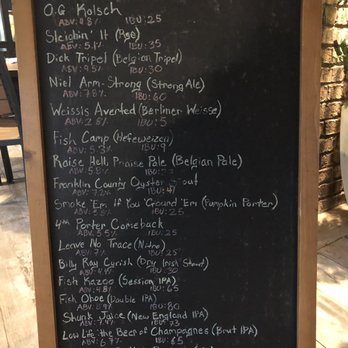 O.G. Kolsch
IBU: 25
Sleighin' It (Rye)
ABV: 5.1% IBU: 35
Dick Tripel (Belgian Tripel)
ABV: 9.5% IBU: 30
Niel Arm-Strong (Strong Ale)
ABV: 7.8% IBU: 60
Weissis Averted (Berliner Weisse)
ABV: 2.8% IBU: 5
Fish Camp (Hefeweizen)
ABV: 5.3% IBU: 9
Raise Hell, Praise Pale (Belgian Pale)
IBU: 23
Franklin County Oyster Stout
Smoke 'Em If You Ground 'Em (Pumpkin Porter)
IBU: 25
Porter Comeback
ABV: 5.5% IBU: 25
Leave No Trace (Nitro)
IBU: 25
Billy Ray Cyrish (Dry Irish Stout)
IBU: 30
Fish Kazoo (Session IPA)
IBU: 65
Fish Oboe (Double IPA)
IBU: 80
Skunk Juice (New England IPA)
IBU: 73
Low Life the Beer of Champagnes (Brut IPA)
IBU: 65